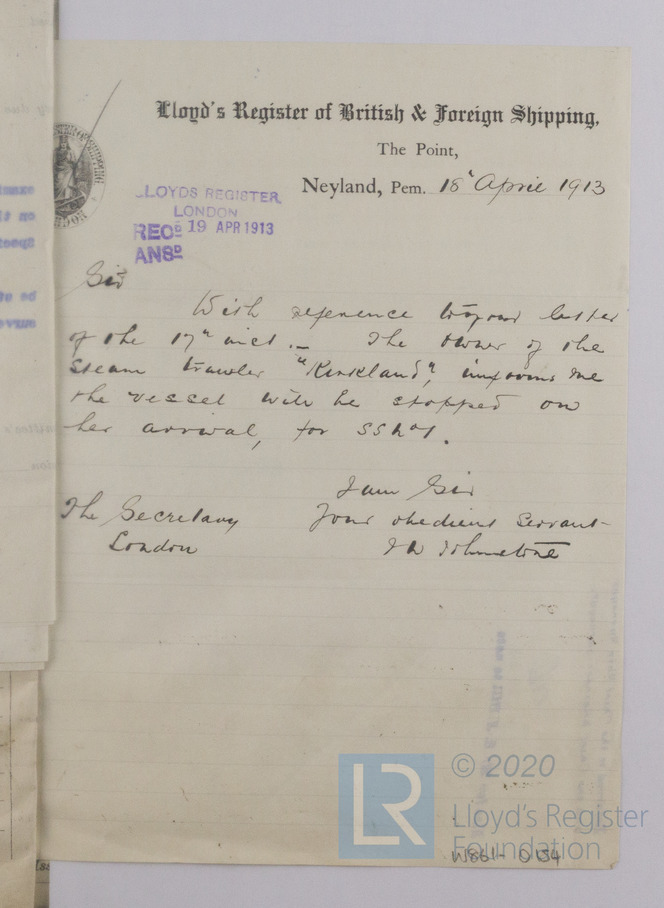 Lloyd's Register of British & Foreign Shipping,
The Point,
Neyland, Pem. 18th April 1913
LLOYDS REGISTER,
LONDON
RECD 19 APR 1913
ANSD
Sir
With reference to your letter
of the 17th inst. — The owner of the
steam trawler "Kirkland", informs me
the vessel will be stopped on
her arrival, for SS No 1.
I am Sir
The Secretary Your obedient Servant
London J W Johnstone
© 2020
LR
Lloyd's Register
Foundation
W861-0154